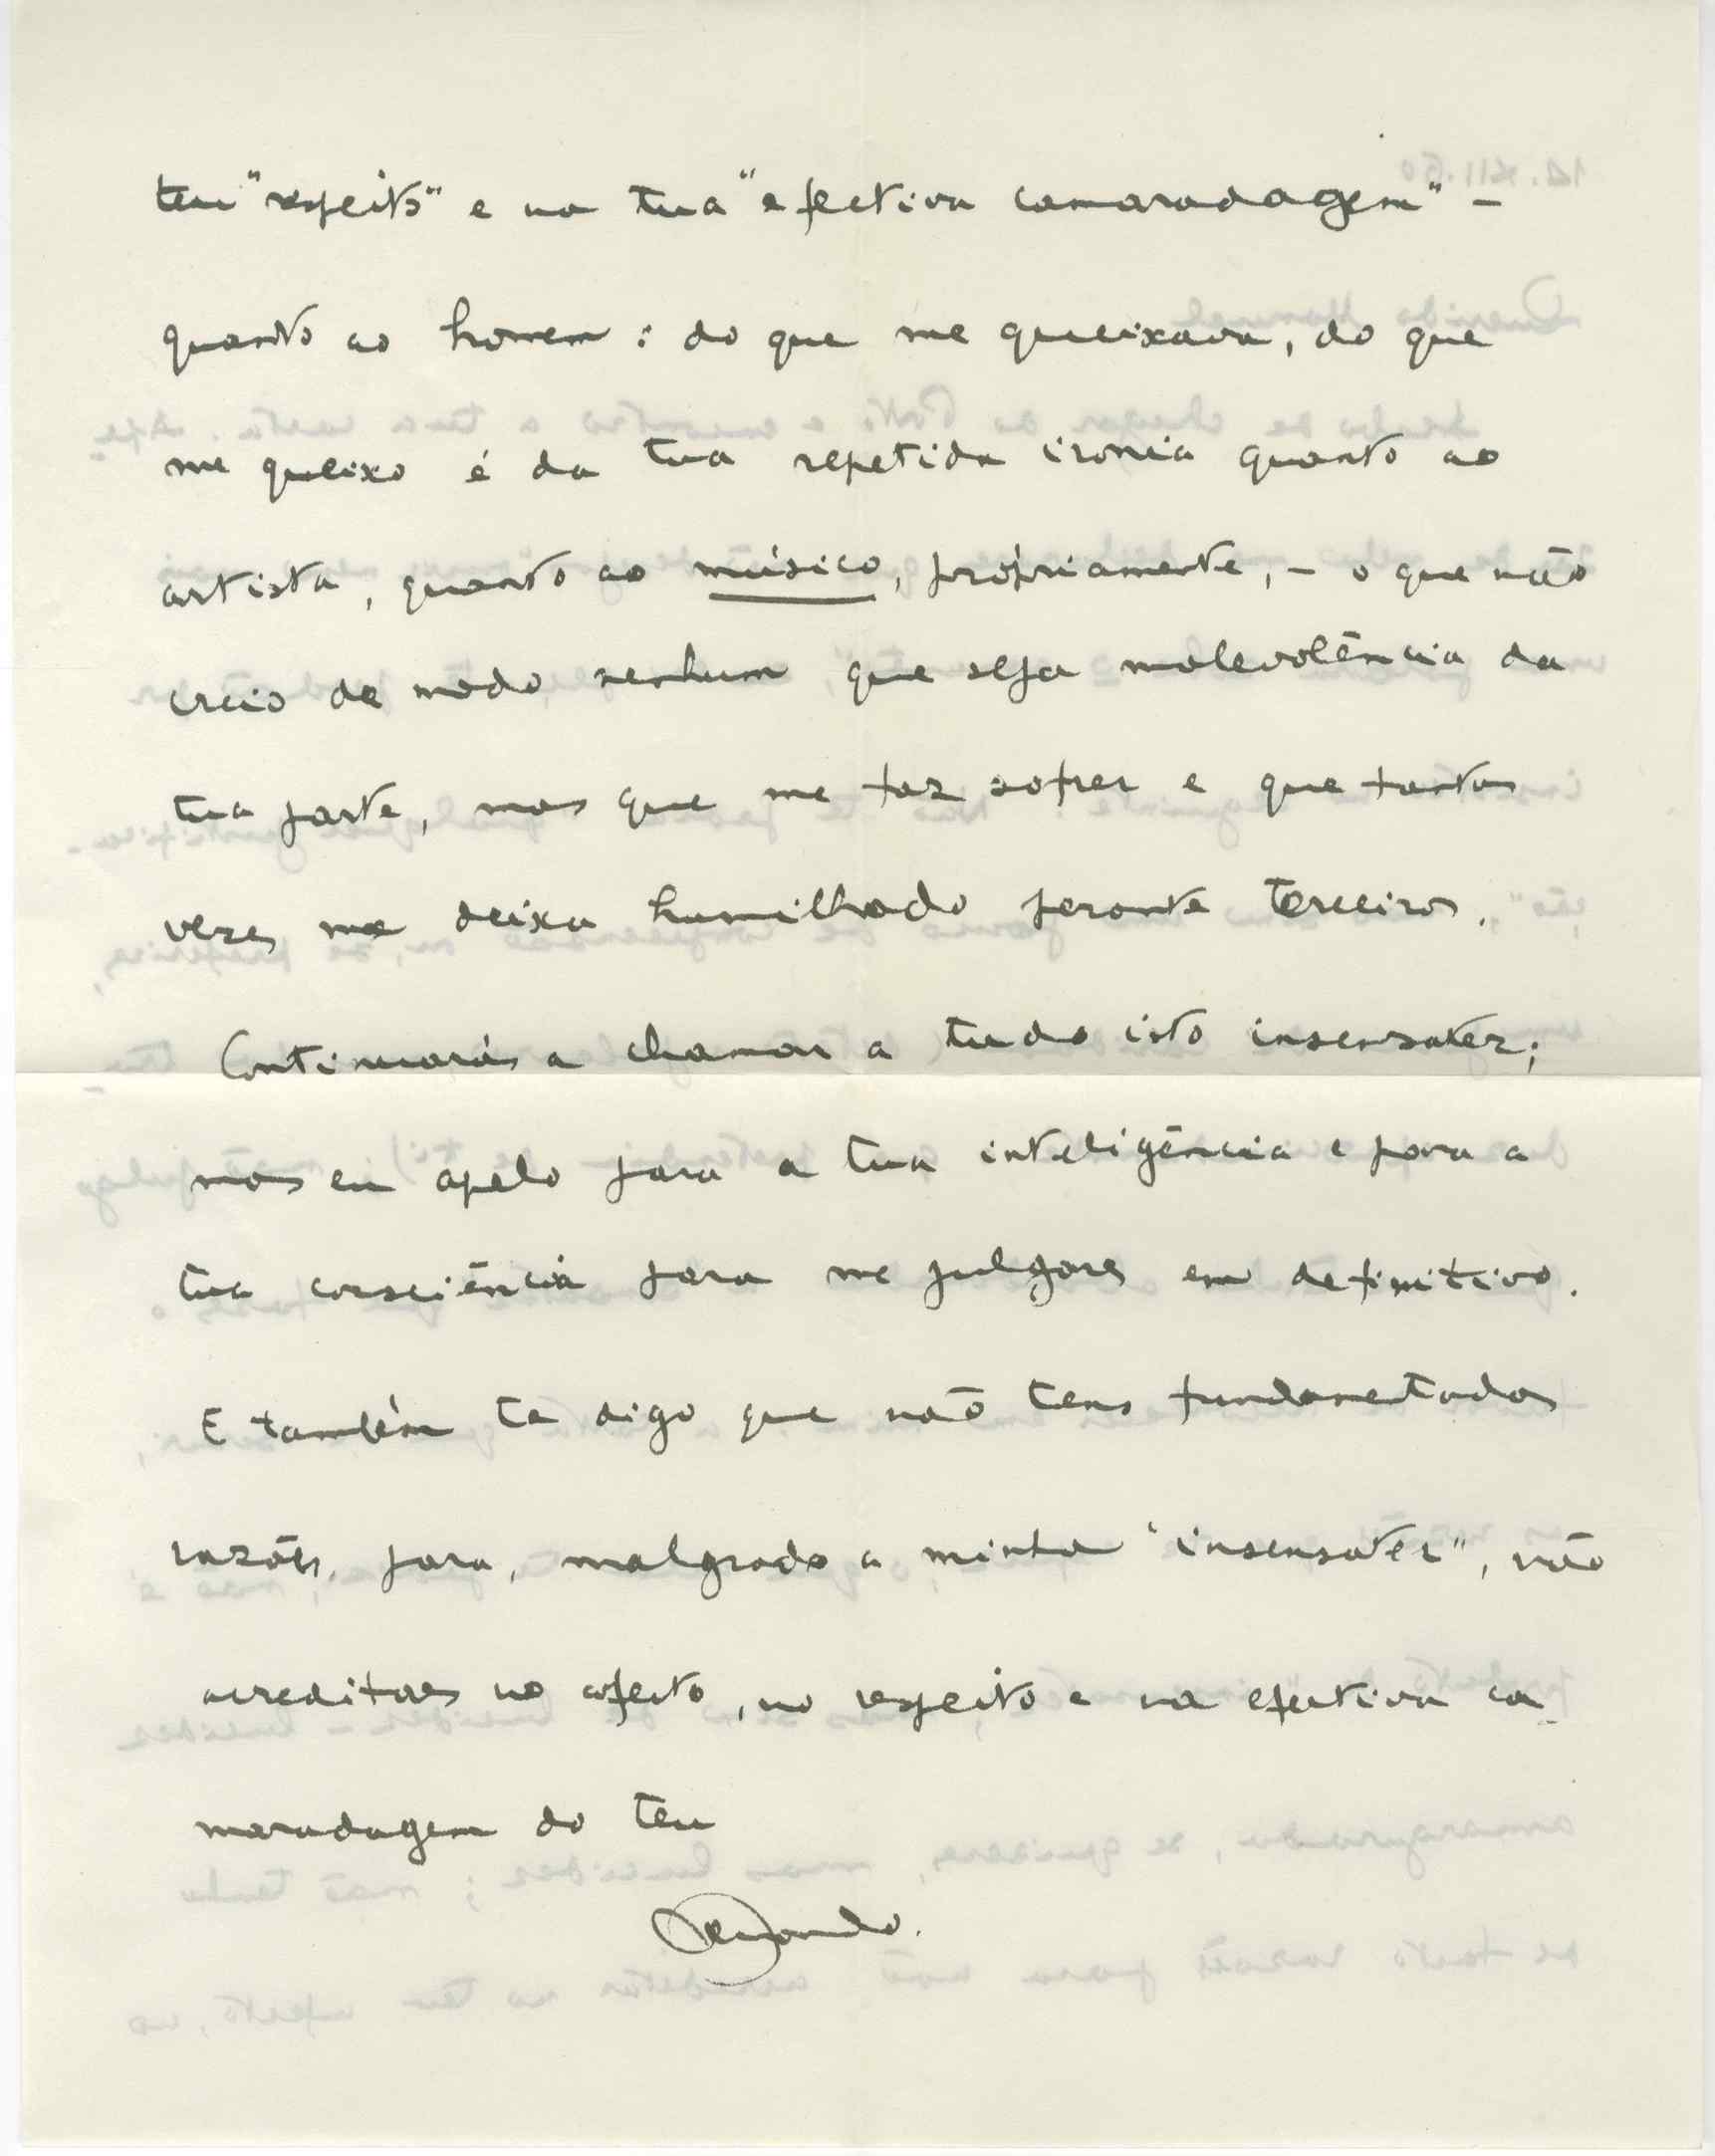 teu "respeito" e na tua "efectiva camaradagem" –
quanto ao homem: do que me queixava, do que
me queixo é da tua repetida ironia quanto ao
artista, quanto ao músico, pròpriamente, – o que não
creio de modo nenhum que seja malevolência da
tua parte, mas que me faz sofrer e que tantas
vezes me deixa humilhado perante terceiros.
Continuarás a chamar a tudo isto insensatez;
mas eu apelo para a tua inteligência e para a
tua consciência para me julgares em definitivo.
E também te digo que não tens fundamentadas
razões, para, malgrado a minha "insensatez", não
acreditares no afecto, no respeito e na efectiva ca-
maradagem do teu
Fernando.